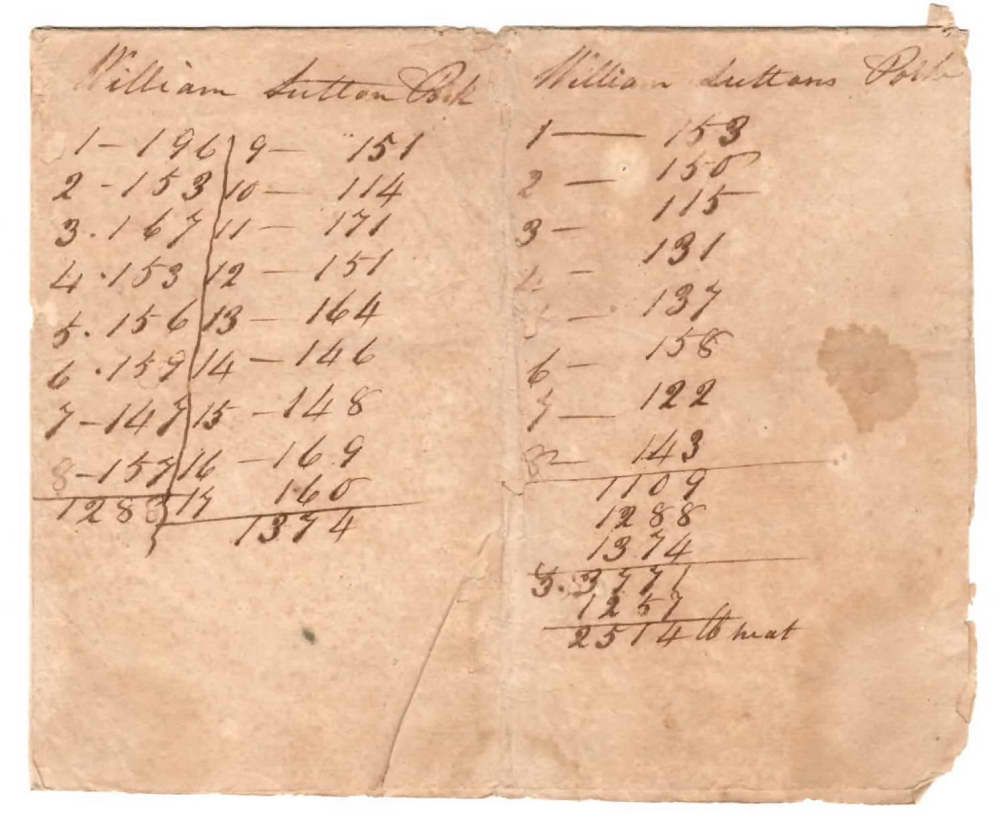 William Sutton Pork
1 - 196 9 - 151
2 - 153 10 - 114
3. 167 11 - 171
4. 153 12 - 151
5. 156 13 - 164
6. 159 14 - 146
7 - 147 15 - 148
8 - 157 16 - 169
1288 17 160
1374
William Suttons Pork
1 — 153
2 — 150
3 - 115
4 - 131
5 - 137
6 - 158
7 — 122
8 — 143
1109
1288
1374
3. 3771
1257
2514 lb neat